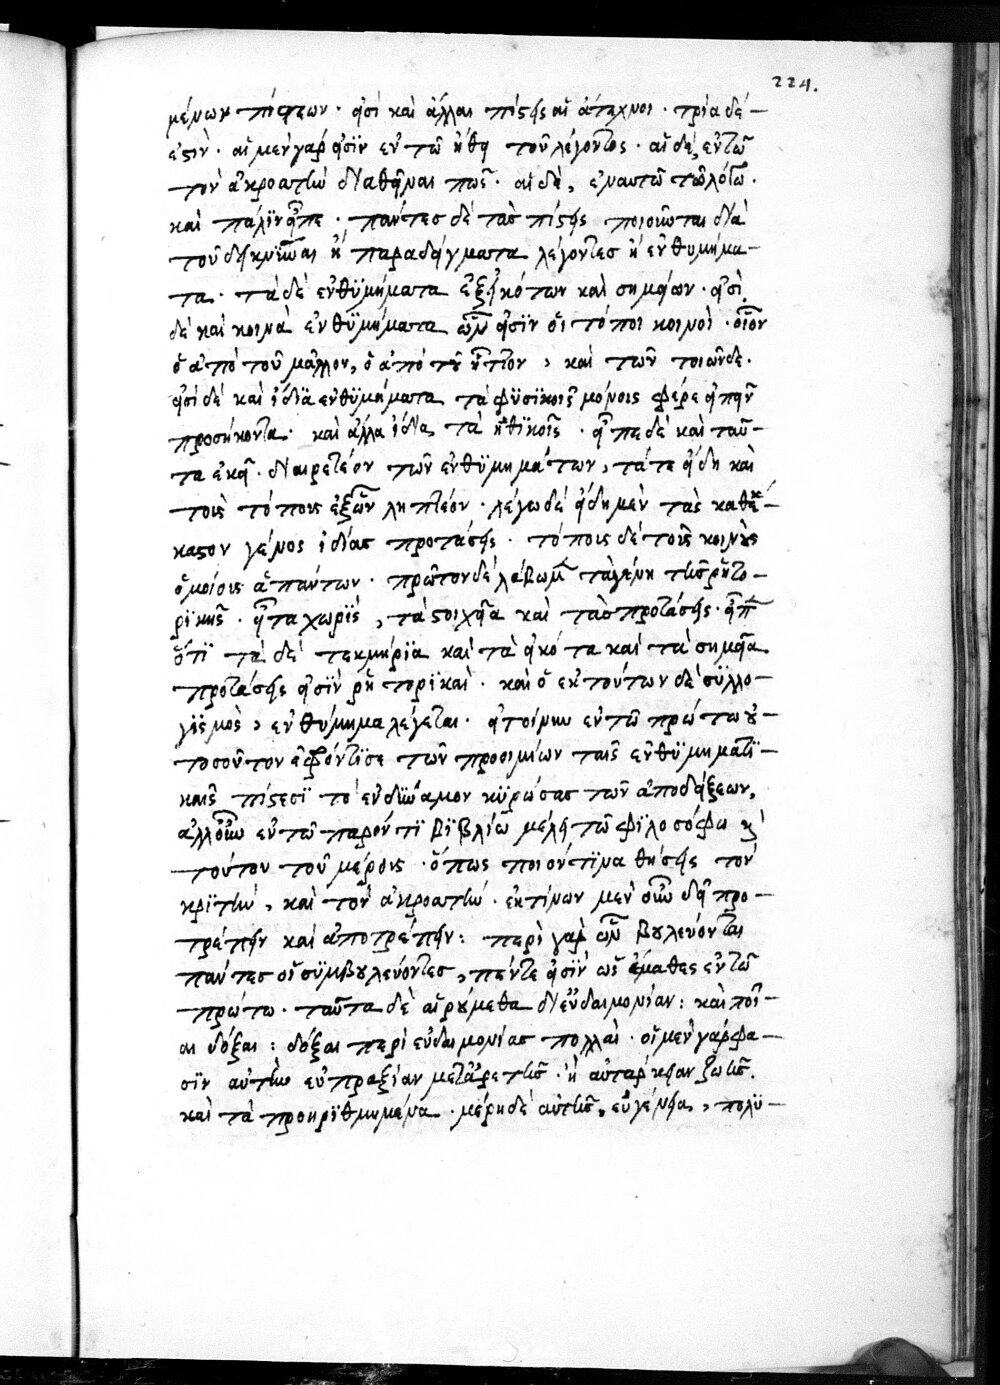 224.
μένων πίστεων · εἰσὶ καὶ ἄλλαι πίστεις αἳ ἄτεχνοι · τρία δέ
ἐστιν · αἳ μὲν γάρ εἰσϊν ἐν τῶ ἤθει τοῦ λέγοντος · αἳ δὲ, ἐν τῶ
τὸν ἀκροατὴν διαθεῖναι πως · αἱ δὲ, ἐν αυτῶ τῶ λόγω ·
καὶ πάλϊν εἶπε · πάντες δὲ τὰς πίστεις ποιοῦνται διὰ
τοῦ δεικνῦναι ἢ παραδείγματα λέγοντες ἢ ἐνθυμήμα
τα · τὰ δὲ ἐνθϋμήματα ἐξ εἰκότων καὶ σημείων · εἰσὶ
δὲ καὶ κοινὰ ἐνθϋμήματα ὧν εἰσϊν οἵ τόποι κοινοὶ · οἷον
ὅ ἀπὸ τοῦ μᾶλλον, ὅ ἀπὸ τοῦ ἧττον, καὶ τῶν τοιῶνδε ·
εἰσὶ δὲ καὶ ἰδϊα ἐνθϋμήματα τὰ φϋσϊκοῖς μόνοις φέρε εἰπεῖν
προσήκοντα · καὶ ἄλλα ἰδία τὰ ἠθϊκοῖς · εἶπε δὲ καὶ ταῦ
τα ἐκεῖ · διαιρετέον τῶν ἐνθϋμημάτων, τά τε εἴδη καὶ
τοὶς τόποις ἐξ ὧν ληπτέον · λέγω δέ εἴδη μὲν τὰς καθ᾽ ἕ
καστον γένος ἰδίας προτάσεις · τόποις δὲ τοὶς κοινοὺς
ὅμοίοις ἁπάντων · πρῶτον δὲ λάβωμεν τὰ γένη τῆς ρητο
ρϊκῆς · εἶτα χωρὶς, τὰ στοιχεῖα καὶ τὰς προτάσεις · εἶπεν
ὅτϊ τὰ δὲ τεκμήρϊα καὶ τὰ εἰκότα καὶ τὰ σημεῖα
προτάσεις εἰσὶν ρητορϊκαὶ · καὶ ὅ ἐκ τούτων δὲ σϋλλο
γϊσμὸς, ἐνθύμημα λέγεται · εἰ τοίνυν ἐν τῶ πρώτω
τοσοῦτον ἐφρόντϊσε τῶν προοιμίων ταὶς ἐνθϋμηματϊ
καὶς πίστεσϊ τὸ ἐνδϋνάμον κϋρώσας τῶν ἀποδείξεων,
ἀλλ᾽ οὖν ἐν τῶ παρόντϊ βϊβλίω μέλει τῶ φϊλοσόφω κ
τούτου τοῦ μέρους · ὅπως ποιόν τϊνα θήσεις τὸν
κρϊτὴν, καὶ τὸν ἀκροατὴν · ἐκ τίνων μὲν οὖν δεῖ προ
τρέπειν καὶ ἀποτρέπειν : περὶ γὰρ ὧν βουλεύονται
πάντες οἱ σϋμβουλεύοντες, πέντε εἰσὶν ὡς ἔμαθες ἐν τῶ
πρώτω · ταῦτα δὲ αἱρούμεθα δι᾽ εὐδαιμονίαν : καὶ ποῖ
αι δόξαι : δόξαι περὶ εὐδαιμονίας πολλαὶ · οἱ μὲν γάρ φα
σϊν αὐτὴν εὐπραξίαν μετ᾽ ἀρετῆς · ἢ αὐτάρκειαν ζωῆς.
καὶ τὰ προηρϊθμημένα · μέρη δὲ αὐτῆς, εὐγένεια, πολϋ